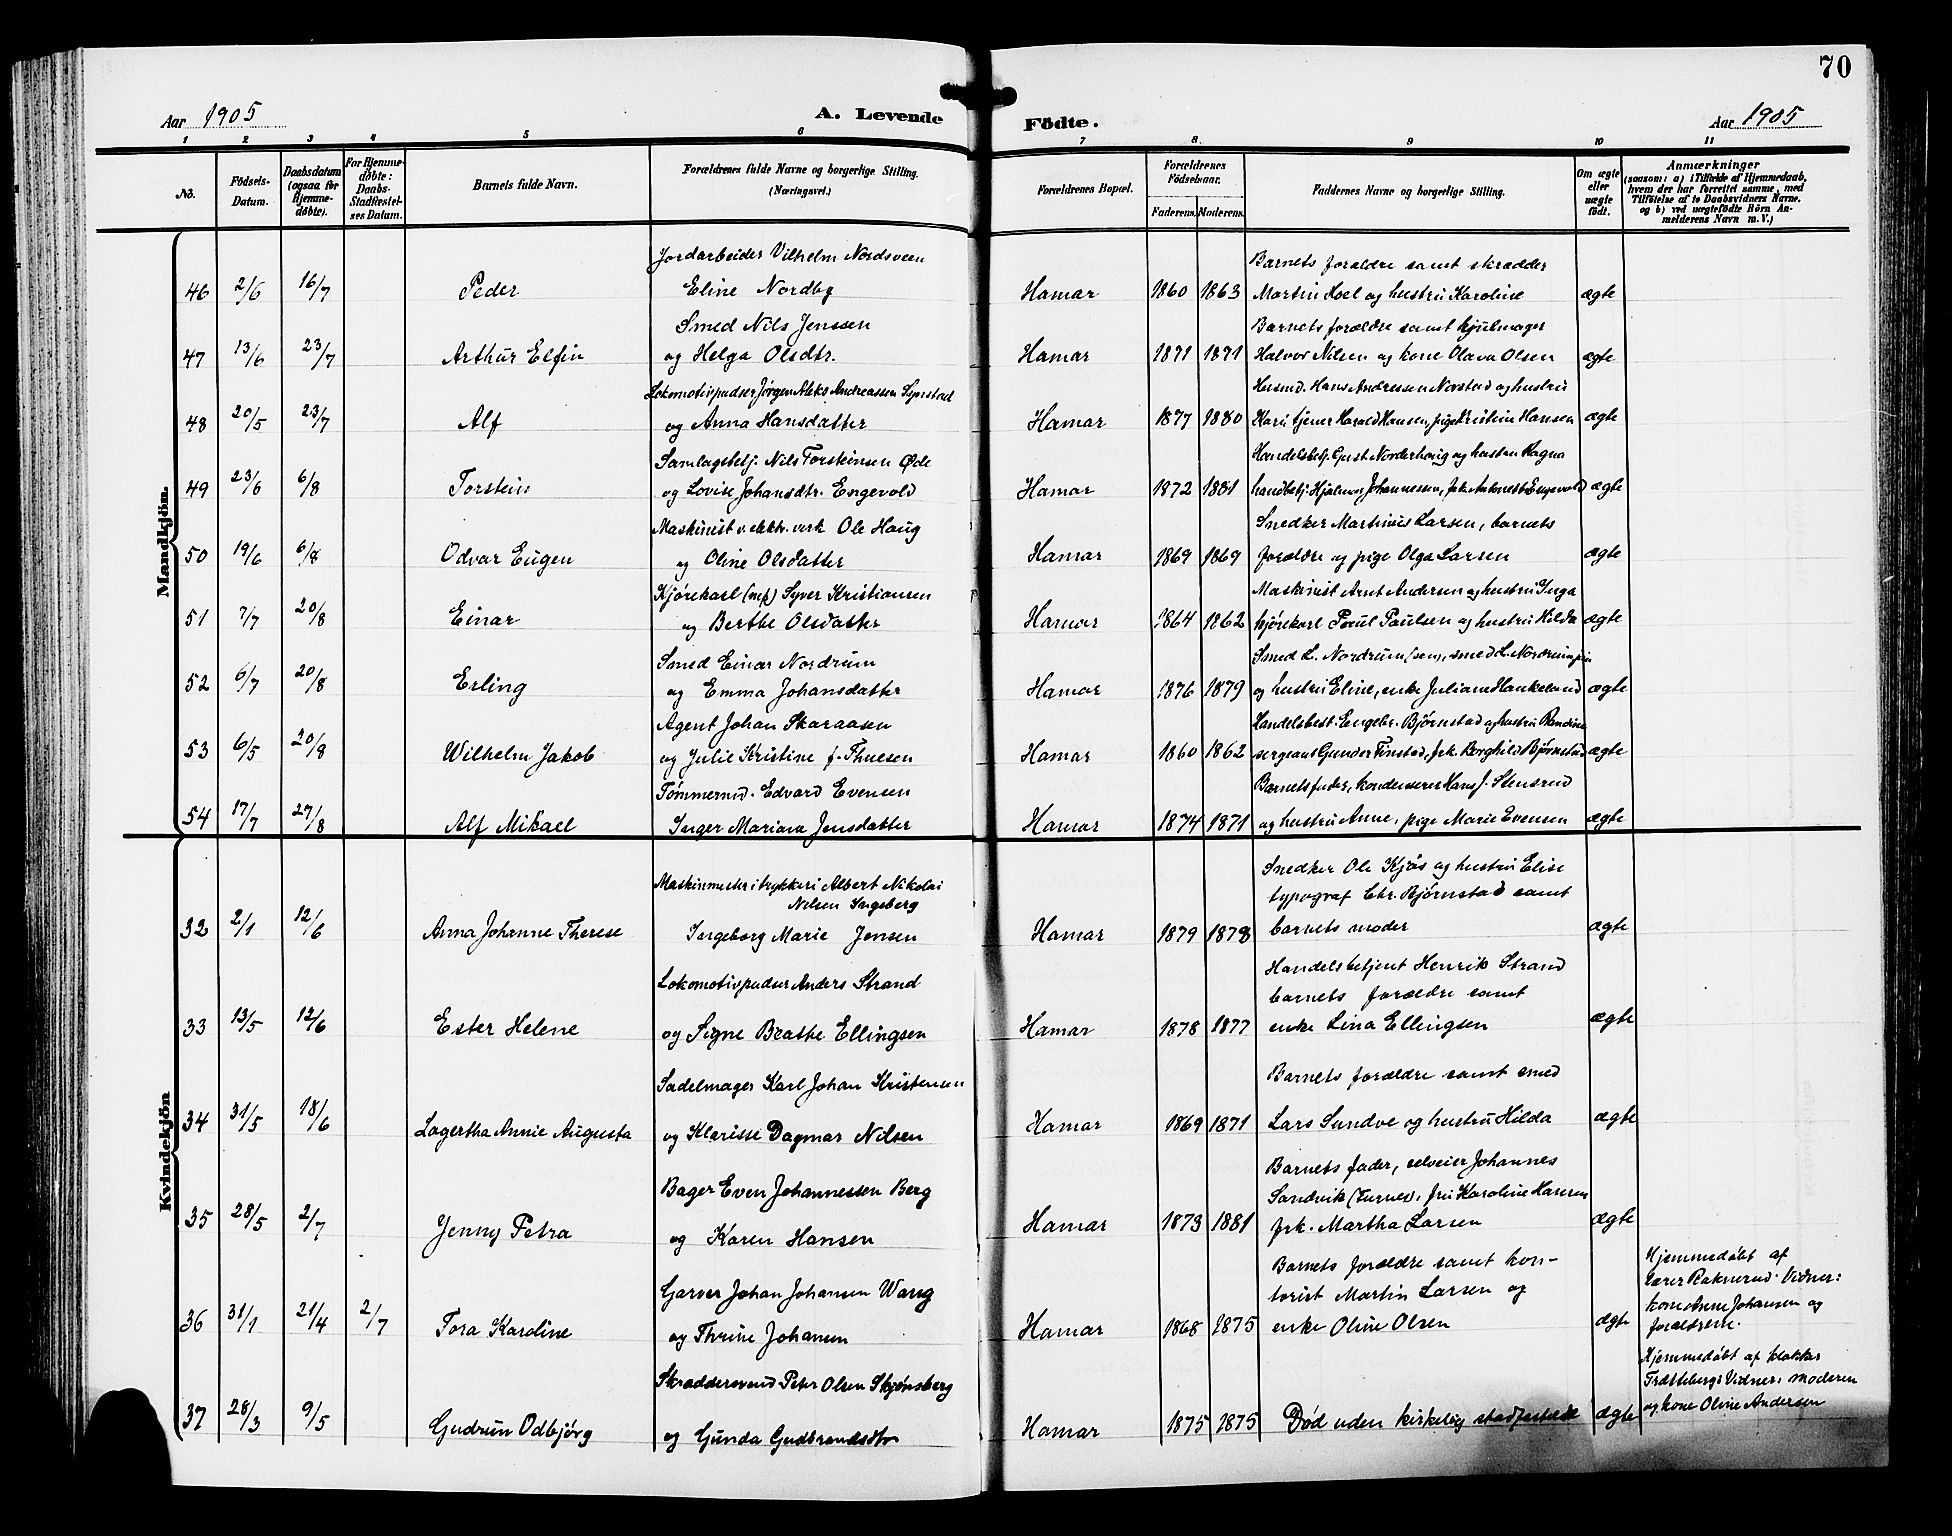 70
Aar 1905 A. Levende Födte. Aar 1905
1 2 3 4 5 6 7 8. 9 10 11
No. Födsels-Datum. Daabsdatum (ogsaa for Hjemmedøbte). For Hjemmedøbte: Daabs-Stadfæstelses Datum. Barnets fulde Navn. Forældrenes fulde Navne og borgerlige Stilling. (Næringsvei.) Forældrenes Bopæl. Forældrenes Födselsaar. Faderens. Moderens. Faddernes Navne og borgerlige Stilling. Om ægte eller uægte født. Anmærkninger (saasom: a) i Tilfælde af Hjemmedaab, hvem der har forrettet samme, med Tilföielse af to Daabsvidners Navne. og b) ved uægtefödte Börn Anmelderens Navn m. V.)
Mandkjön.
Jordarbeider Vilhelm Nordsveen Barnets forældre samt skrædder
46 2/6 16/7 Peder Eline Nordby Hamar 1860 1863 Martin Hoel og hustru Karoline ægte
Smed Nils Jenssen Barnets forældre samt hjulmager
47 13/6 23/7 Arthur Elfin og Helga Olsdtr. Hamar 1871 1871 Halvor Nilsen og kone Olava Olsen ægte
Lokomotivpudser Jørgen Aleks Andreassen Synstad Husmd. Hans Andressen Norstad og hustru
48 20/5 23/7 Alf og Anna Hansdatter Hamar 1877 1880 Kari tjener Harald Hansen, pige Kristine Hansen ægte
Samlagsbetj. Nils Torsteinsen Øde Handelsbetj. Gust Norderhaug og hustru Ragna
49 23/6 6/8 Torstein og Lovise Johansdtr. Engevold Hamar 1872 1881 handbetj. Hjalmar Johannessen, frk. Antonette Engevold ægte
Maskinist v. elektr. verk Ole Haug Snedker Martinius Larsen, barnets
50 19/6 6/8 Odvar Eugen og Oline Olsdatter Hamar 1869 1869 forældre og pige Olga Larsen ægte
Kjørekarl Syver Kristiansen Maskinist Arnt Andersen og hustru Inga
51 7/7 20/8 Einar og Berthe Olsdatter Hamar 1864 1862 kjørekarl Paul Paulsen og hustru Hilda ægte
Smed Einar Nordrum Smed L. Nordrum (sen), smed L. Nordrum jun
52 6/7 20/8 Erling og Emma Johansdatter Hamar 1876 1879 og hustru Eline, enke Juliane Haukeland ægte
Agent Johan Skaraasen Handelsbest. Engebr. Bjørnstad og hustru Randine
53 6/5 20/8 Wilhelm Jakob og Julie Kristine f. Thuesen Hamar 1860 1862 sergeant Gunder Finstad, frk. Borghild Bjørnstad ægte
Tømmermd. Edvard Evensen Barnets fader, kondenserer Hans J. Stensrud
54 17/7 27/8 Alf Mikael Inger Mariana Jensdatter Hamar 1874 1871 og hustru Anne, pige Marie Evensen ægte
Kvindekjön
Maskinmester i trykkeri Albert Nikolai Snedker Ole Kjøs og hustru Elise
Nilsen Ingeberg typograf Chr. Bjørnstad samt
32 2/1 12/6 Anna Johanne Therese Ingeborg Marie Jensen Hamar 1879 1878 barnets moder ægte
Lokomotivpudser Anders Strand Handelsbetjent Henrik Strand
barnets forældre samt
33 13/5 12/6 Ester Helene og Signe Beathe Ellingsen Hamar 1878 1877 enke Lina Ellingsen ægte
Sadelmager Karl Johan Kristensen Barnets forældre samt smed
34 31/5 18/6 Lagertha Annie Augusta og Klarisse Dagmar Nilsen Hamar 1869 1871 Lars Sundve og hustru Hilda ægte
Barnets fader, selveier Johannes
Bager Even Johannessen Berg Sandvik (Furnes), fru Karoline Hansen
35 28/5 2/7 Jenny Petra og Karen Hansen Hamar 1873 1881 frk. Martha Larsen ægte
Barnets forældre samt kon- Hjemmedøbt af
Garver Johan Johansen Wang torist Martin Larsen og lærer Raknerud. Vidner:
36 31/1 21/4 2/7 Tora Karoline og Thrine Johansen Hamar 1868 1875 enke Oline Olsen ægte kone Anne Johansen og
forældrene.
Skræddersvend Peter Olsen Skjønsberg Hjemmedøbt af klokker
Trætteberg. Vidner: moderen
37 28/3 9/5 Gudrun Odbjørg og Gunda Gudbrandsdtr Hamar 1875 1875 Død uden kirkelig stadfæstelse ægte og kone Oline Andersen